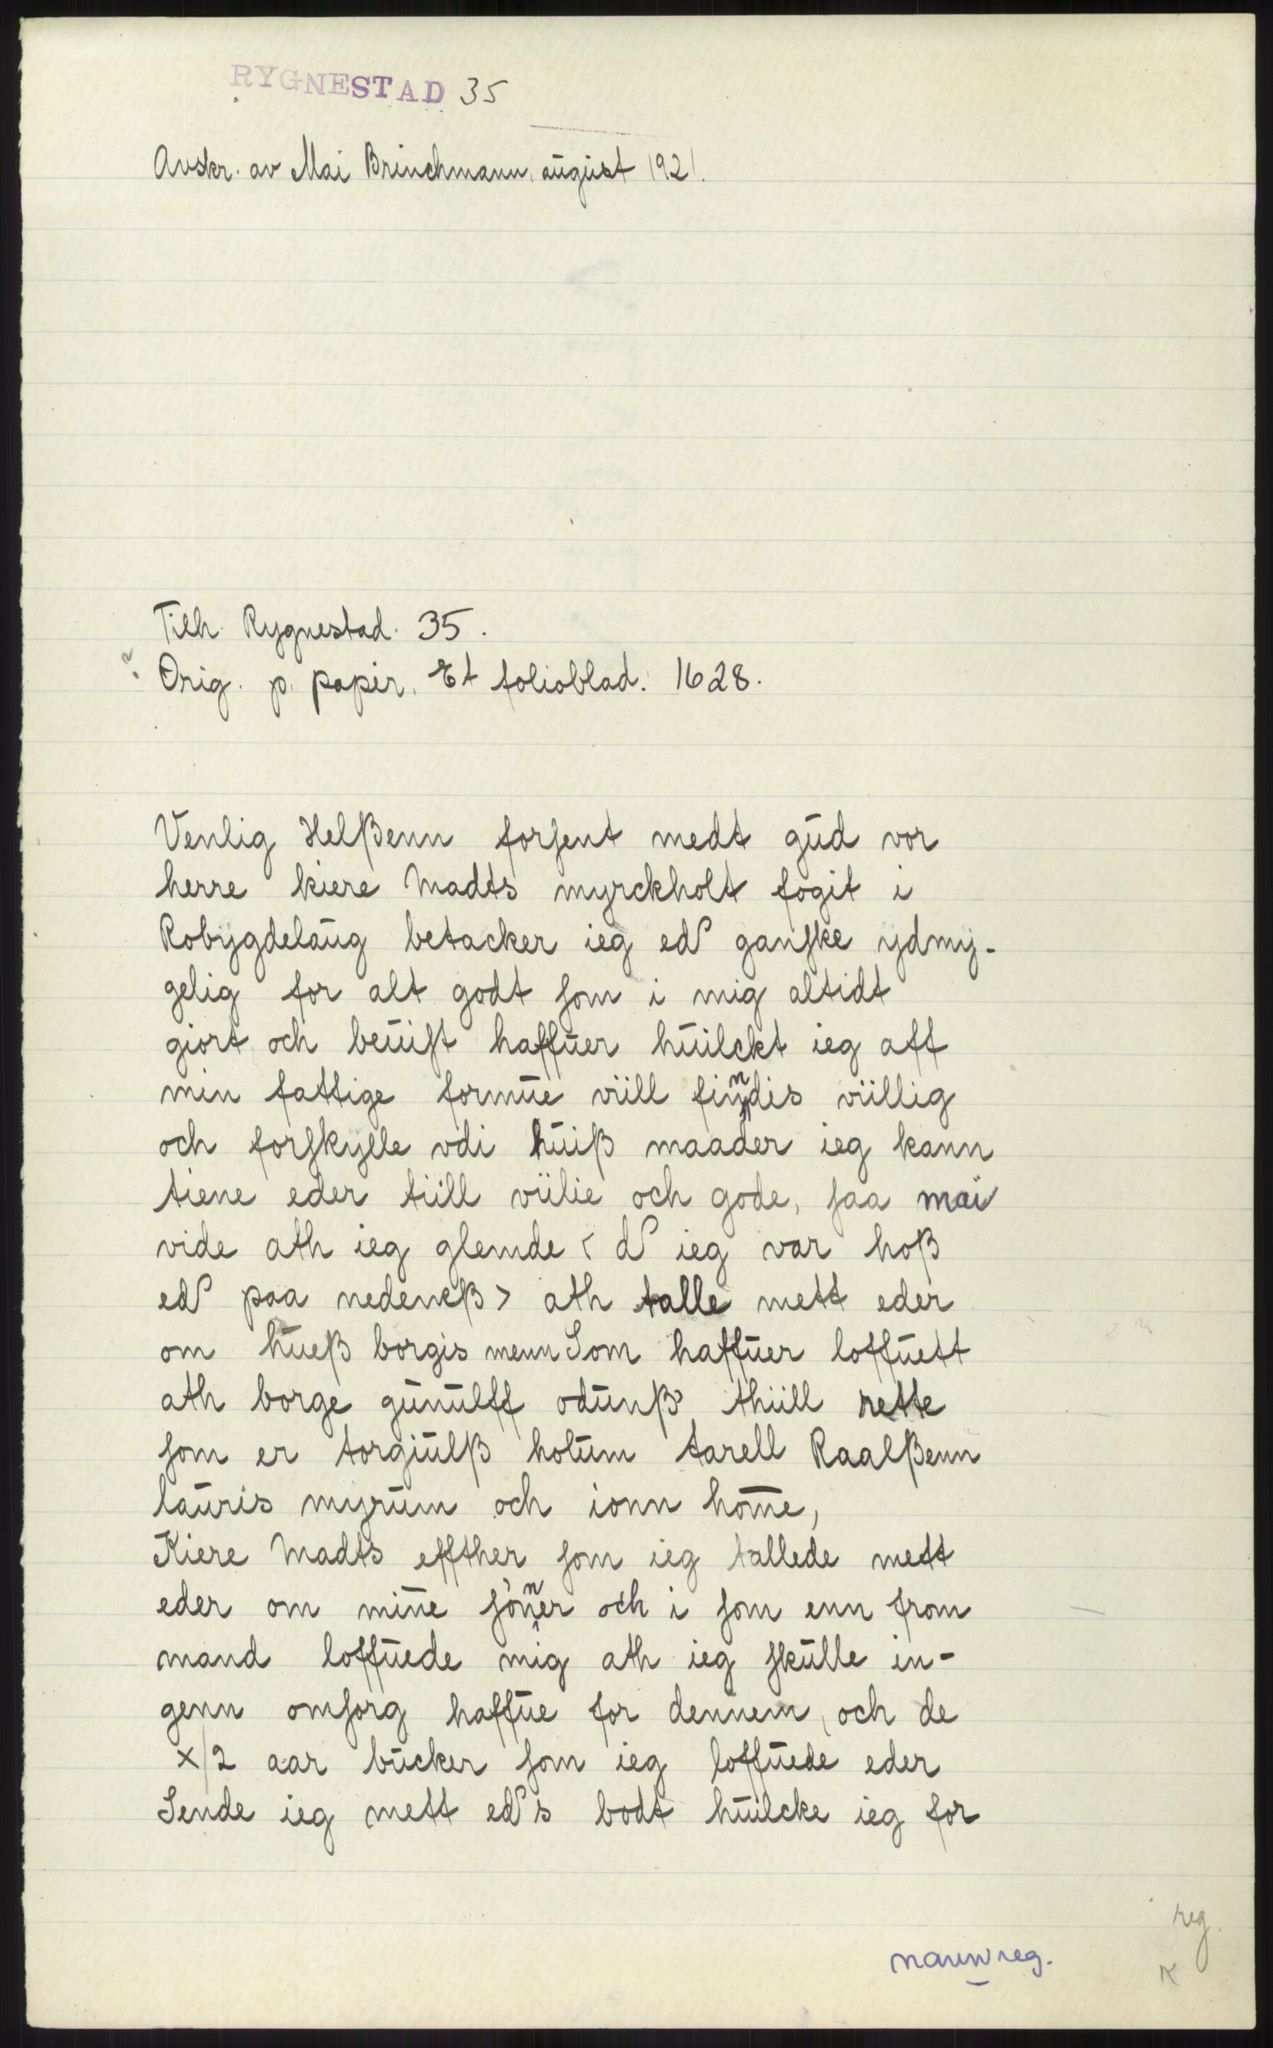 RYGNESTAD 35
Avskr. av Mai Brinchmann, august 1921.
Tilh. Rygnestad. 35.
Orig. p. papir. Et folioblad. 1628.
Venlig Helßenn forsent medt gud vor
herre kiere Madts myrckholt fogit i
Robygdelaug betacker ieg ed ganske ydmy-
gelig for alt godt som i mig altidt
giort och beuist haffuer huilckt ieg aff
min fattige formue viill finndis viillig
och forskylle vdi huiß maader ieg kann
tiene eder tiill viilie och gode, saa mai
vide ath ieg glemde < d ieg var hoß
ed paa nedeneß > ath talle mett eder
om hueß borgis menn Som haffuer loffuett
ath borge gunulff odunß thiill rette
som er torgiulß holum tarell Raalßenn
lauris myrum och ionn home,
Kiere Madts effther som ieg tallede mett
eder om mine sønner och i som enn from
mand loffuede mig ath ieg skulle in-
genn omsorg haffue for dennem, och de
x/2 aar bucker som ieg loffuede eder
Sende ieg mett eds bodt huilcke ieg for
reg.
navnreg.